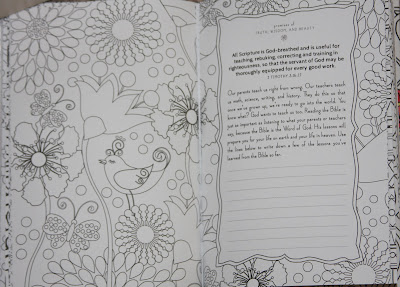 promises of
TRUTH, WISDOM, AND BEAUTY
All Scripture is God-breathed and is useful for
teaching, rebuking, correcting and training in
righteousness, so that the servant of God may be
thoroughly equipped for every good work.
2 TIMOTHY 3:16-17
Our parents teach us right from wrong. Our teachers teach
us math, science, writing, and history. They do this so that
once we've grown up, we're ready to go into the world. You
know what? God wants to teach us too. Reading the Bible is
just as important as listening to what your parents or teachers
say, because the Bible is the Word of God. His lessons will
prepare you for your life on earth and your life in heaven. Use
the lines below to write down a few of the lessons you've
learned from the Bible so far.